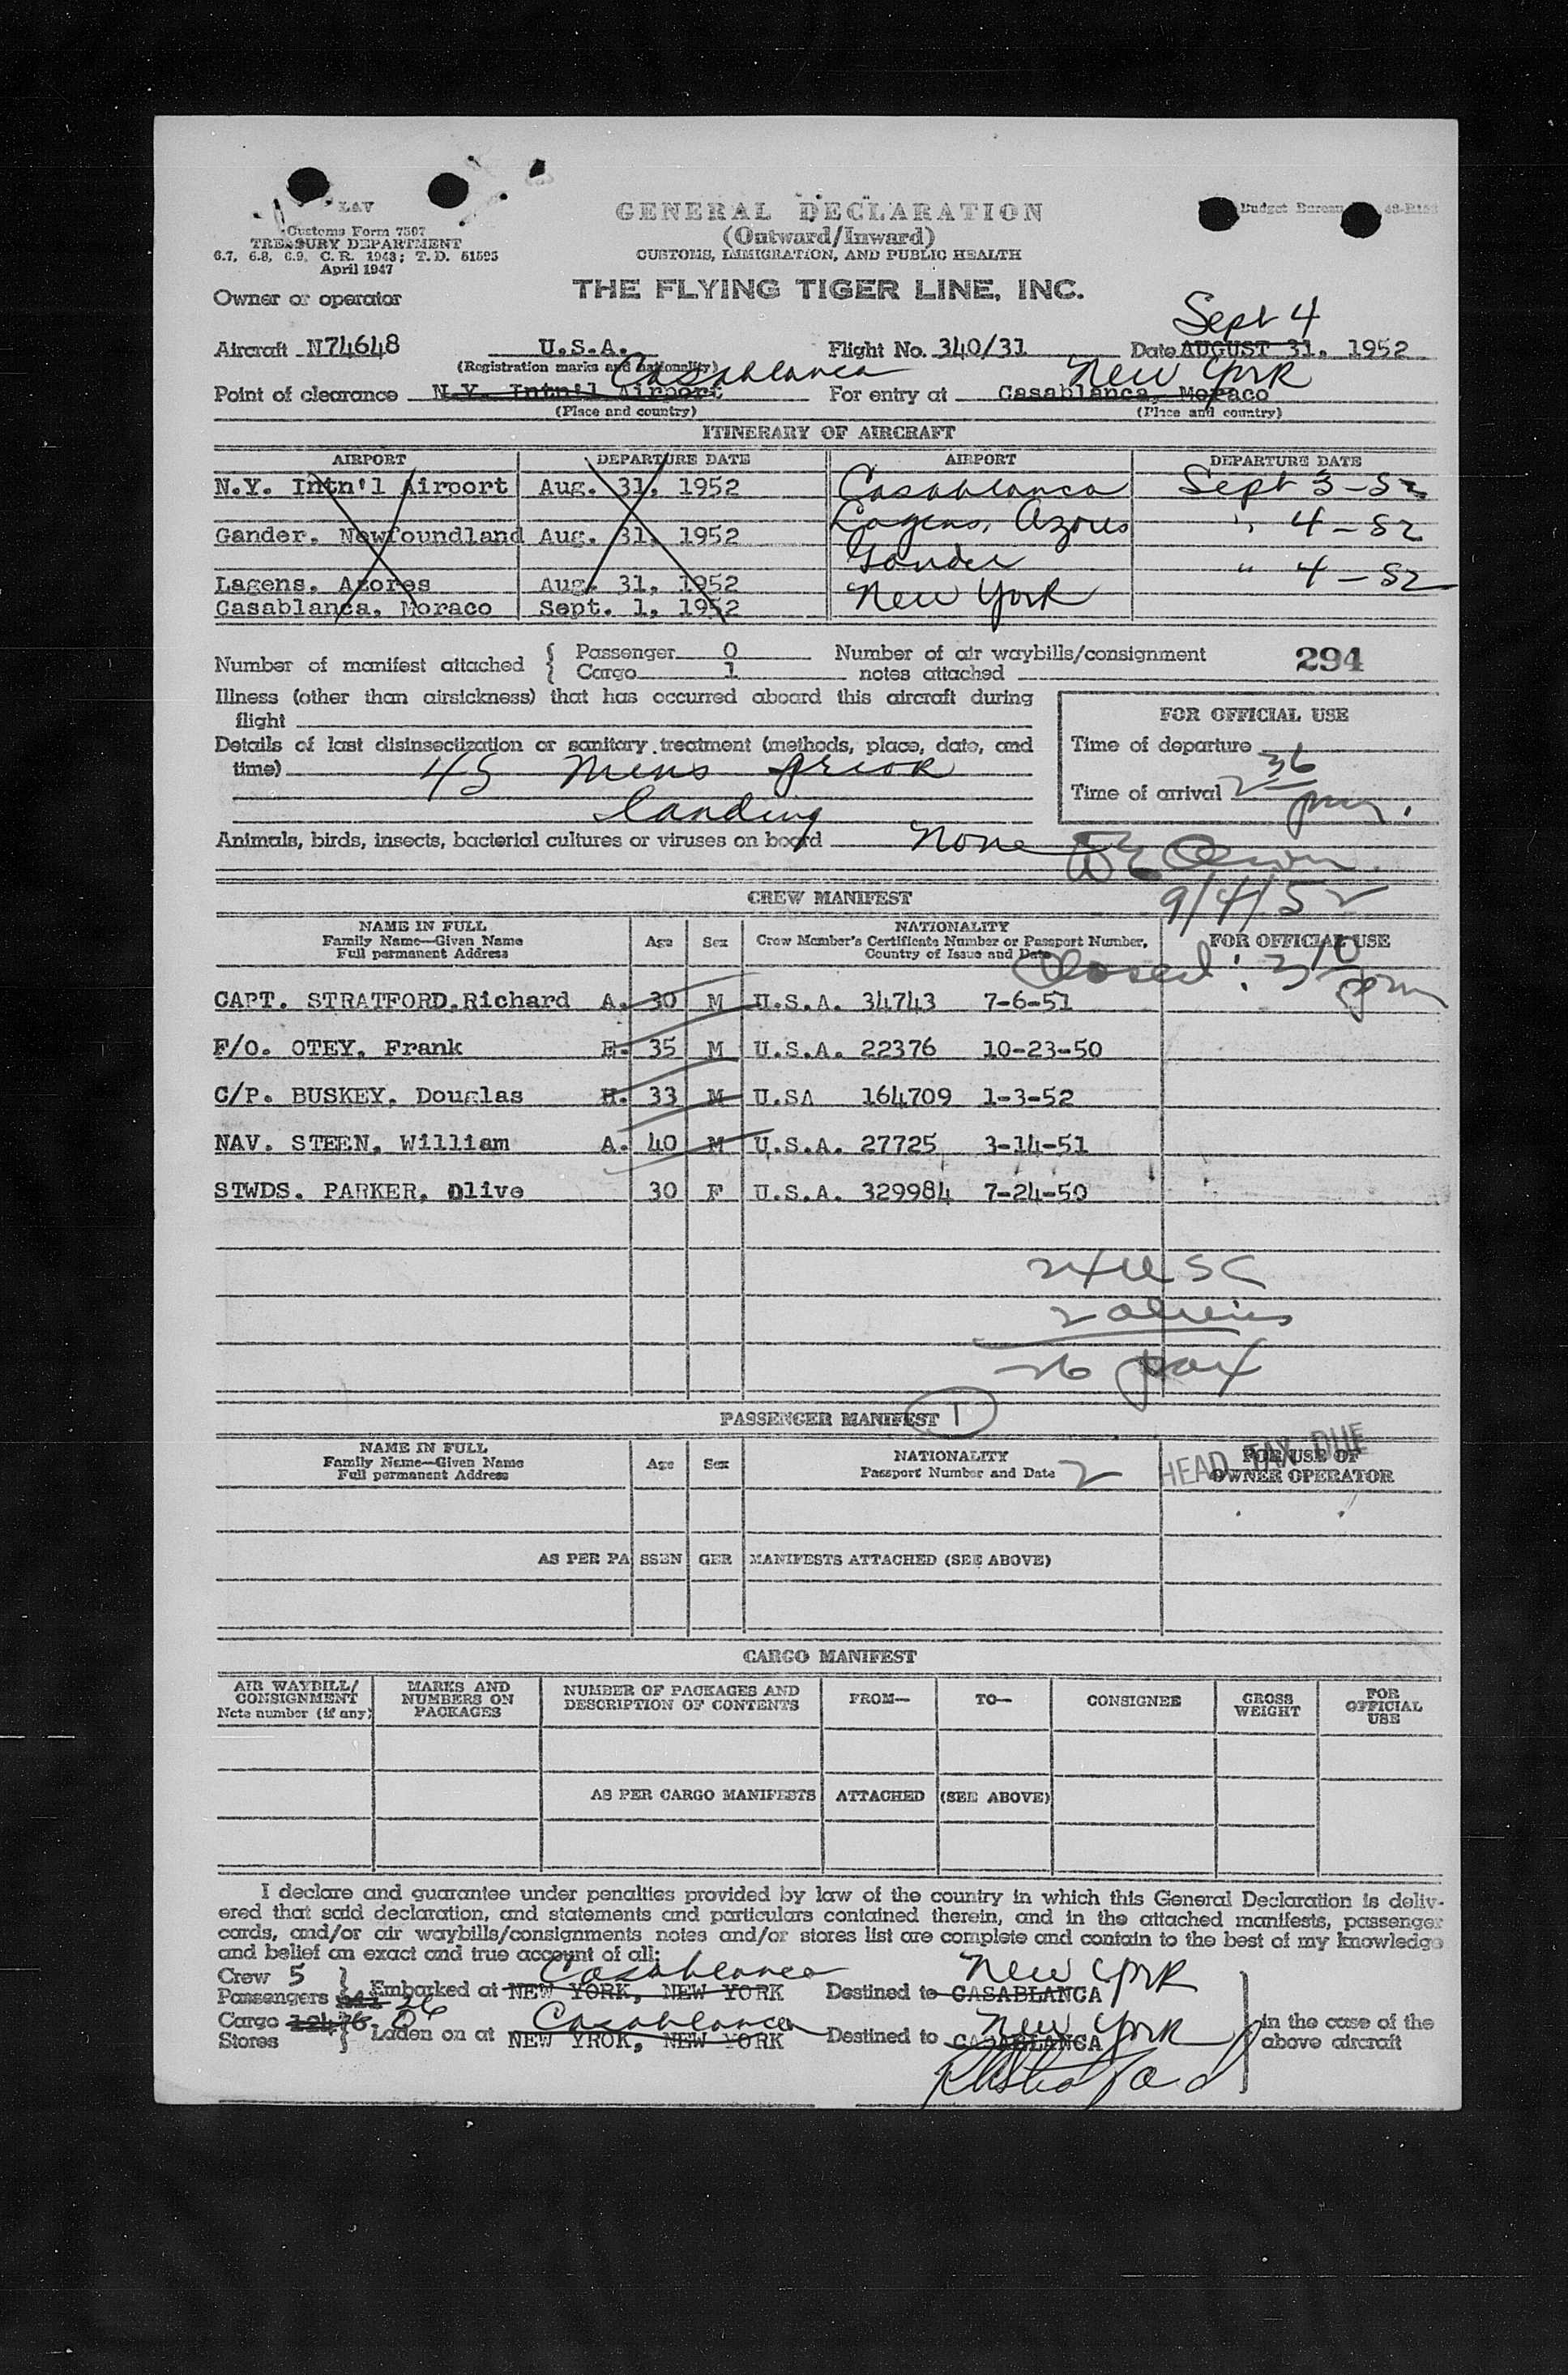 LAV
Customs Form 7507
TREASURY DEPARTMENT
6.7, 6.8, 6.9, C. R. 1943; T. D. 51593
April 1947
GENERAL DECLARATION
(Outward/Inward)
CUSTOMS, IMMIGRATION, AND PUBLIC HEALTH
Budget Bureau
THE FLYING TIGER LINE, INC.
Owner or operator
Sept 4
Aircraft N74648 U.S.A. Flight No. 340/31 Date AUGUST 31, 1952
(Registration marks and nationality)
Casablanca New York
Point of clearance N.Y. Intn'l Airport For entry at Casablanca, Moraco
(Place and country) (Place and country)
ITINERARY OF AIRCRAFT
AIRPORT DEPARTURE DATE AIRPORT DEPARTURE DATE
N.Y. Intn'l Airport Aug. 31, 1952 Casablanca Sept 3-52
Gander, Newfoundland Aug. 31, 1952 Lagens, Azores " 4-52
Lagens, Azores Aug. 31, 1952 Gander " 4-52
Casablanca, Moraco Sept. 1, 1952 New York
Number of manifest attached { Passenger 0 Number of air waybills/consignment 294
{ Cargo 1 notes attached
Illness (other than airsickness) that has occurred aboard this aircraft during
flight
FOR OFFICIAL USE
Details of last disinsectization or sanitary treatment (methods, place, date, and
time) 45 mins prior
landing
Time of departure
Time of arrival 2 36 pm.
Animals, birds, insects, bacterial cultures or viruses on board None
9/4/52
CREW MANIFEST
NAME IN FULL
Family Name—Given Name
Full permanent Address
Age Sex
NATIONALITY
Crew Member's Certificate Number or Passport Number,
Country of Issue and Date
FOR OFFICIAL USE
Closed: 3 10 pm
CAPT. STRATFORD,Richard A. 30 M U.S.A. 34743 7-6-51
F/O. OTEY, Frank E. 35 M U.S.A. 22376 10-23-50
C/P. BUSKEY, Douglas H. 33 M U.SA 164709 1-3-52
NAV. STEEN, William A. 40 M U.S.A. 27725 3-14-51
STWDS. PARKER, Olive 30 F U.S.A. 329984 7-24-50
24 USC
2 aliens
26 pax
PASSENGER MANIFEST 1
NAME IN FULL
Family Name—Given Name
Full permanent Address
Age Sex
NATIONALITY
Passport Number and Date 2
HEAD TAX DUE
FOR USE OF
OWNER OPERATOR
AS PER PASSENGER MANIFESTS ATTACHED (SEE ABOVE)
CARGO MANIFEST
AIR WAYBILL/
CONSIGNMENT
Note number (if any)
MARKS AND
NUMBERS ON
PACKAGES
NUMBER OF PACKAGES AND
DESCRIPTION OF CONTENTS
FROM— TO— CONSIGNEE
GROSS
WEIGHT
FOR
OFFICIAL
USE
AS PER CARGO MANIFESTS ATTACHED (SEE ABOVE)
I declare and guarantee under penalties provided by law of the country in which this General Declaration is deliv-
ered that said declaration, and statements and particulars contained therein, and in the attached manifests, passenger
cards, and/or air waybills/consignments notes and/or stores list are complete and contain to the best of my knowledge
and belief an exact and true account of all:
Casablanca New York
Crew 5
Passengers 26 } Embarked at NEW YORK, NEW YORK Destined to CASABLANCA
Casablanca New York
Cargo 0
Stores } Laden on at NEW YROK, NEW YORK Destined to CASABLANCA
in the case of the
above aircraft
RAStratford